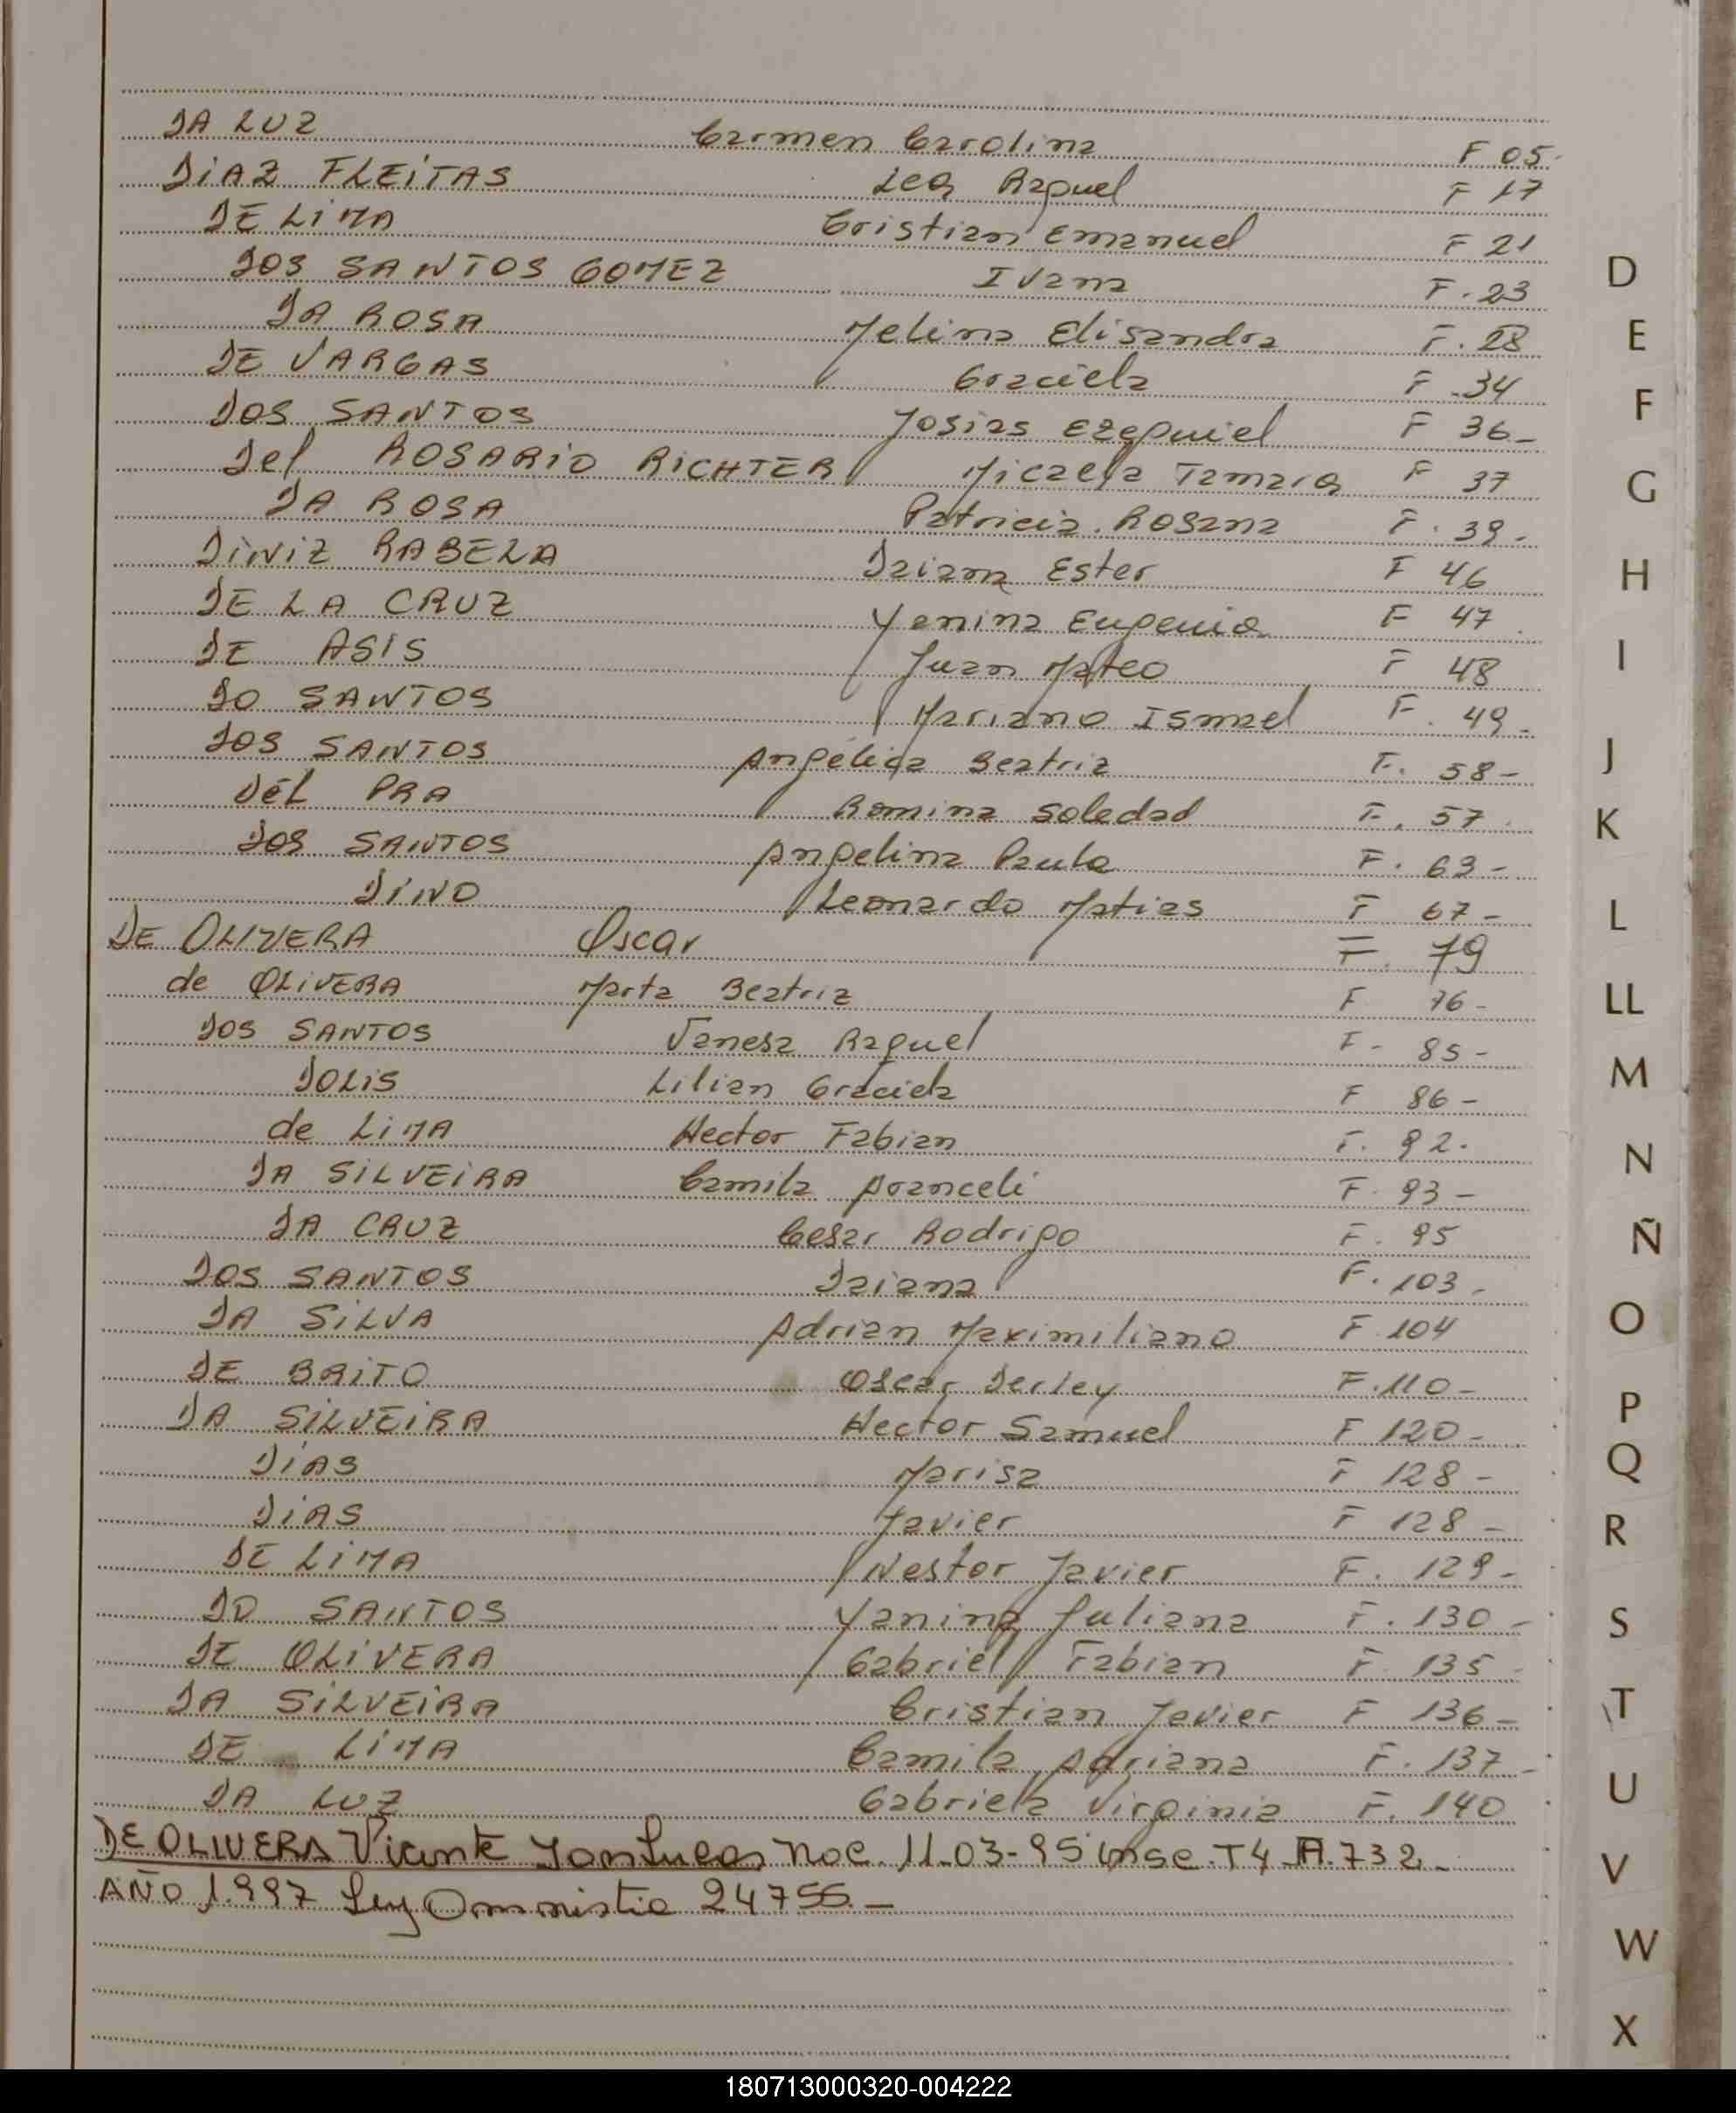 DA LUZ Carmen Carolina F 05-
DiAZ FLEiTAS Lea Raquel F 17
DE LiMA Cristian Emanuel F 21
DOS SANTOS GOMEZ IVan F. 23
DA ROSA Melina Elisandra F. 28
DE VARGAS Graciela F 34
DOS SANTOS Josias Ezequiel F 36-
Del ROSARiO RiCHTER Micaela Tamara F 37
DA ROSA Patricia Rosana F. 39-
DiNiZ RABELA Daiana Ester F 46
DE LA CRUZ Yanina Eugenia F 47
DE ASiS Juan Mateo F 48
DO SANTOS Mariano Ismael F. 49-
DOS SANTOS Angélica Beatriz F. 58-
DEL PRA Romina Soledad F. 57
DOS SANTOS Angelina Paula F. 63-
DiNO Leonardo Matias F 67-
DE OLIVERA Oscar F. 79
de OLiVERA Marta Beatriz F 76-
DOS SANTOS Vanesa Raquel F- 85-
DOLiS Lilian Graciela F 86-
de LiMA Hector Fabian F. 92.
DA SiLVEiRA Camila Aranceli F. 93-
DA CRUZ Cesar Rodrigo F. 95
DOS SANTOS Daiana F. 103-
DA SiLVA Adrian Maximiliano F. 104
DE BRiTO Oscar Derley F.110-
DA SiLVEiRA Hector Samuel F 120-
DiAS Marisa F 128-
DiAS Javier F 128-
DE LiMA Nestor Javier F. 129-
DO SANTOS Yanina Juliana F. 130-
DE OLiVERA Gabriel Fabian F. 135-
DA SiLVEiRA Cristian Javier F 136-
DE LiMA Camila Adriana F. 137-
DA LUZ Gabriela Virginia F. 140
DE OLIVERA Vicente Jon Lucas Nac. 11-03-95 insc. T4 A.732-
AÑO 1.997 Ley Ommistia 24755.-
D
E
F
G
H
I
J
K
L
LL
M
N
Ñ
O
P
Q
R
S
T
U
V
W
X
180713000320-004222